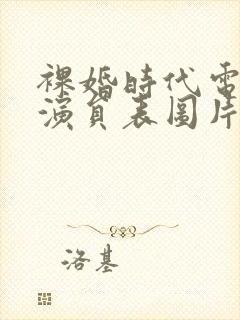 裸婚時代電
演員表圖片
洛基